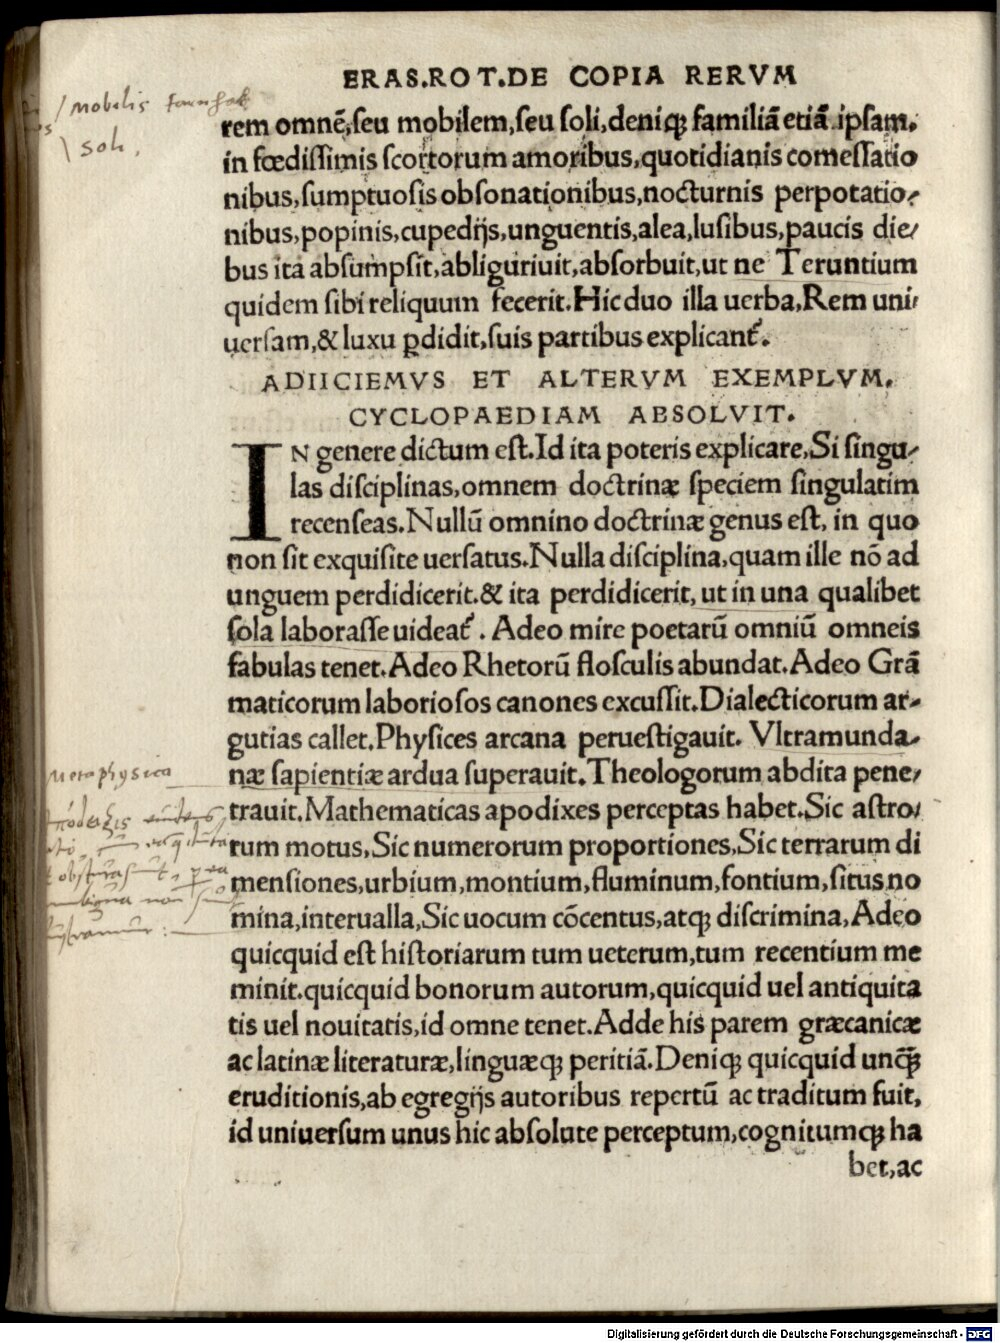 ERAS.ROT.DE COPIA RERVM
Mobilis
soli.
rem omnẽ,ſeu mobilem,ſeu ſoli,deniq; familiã etiã ipſam,
in fœdiſſimis ſcortorum amoribus,quotidianis comeſſatio
nibus,ſumptuoſis obſonationibus,nocturnis perpotatio/
nibus,popinis,cupedijs,unguentis,alea,luſibus,paucis die/
bus ita abſumpſit,abliguriuit,abſorbuit,ut ne Teruntium
quidem ſibi reliquum fecerit.Hic duo illa uerba,Rem uni/
uerſam,& luxu ꝑdidit,ſuis partibus explicant᷑.
ADIICIEMVS ET ALTERVM EXEMPLVM.
CYCLOPAEDIAM ABSOLVIT.
IN genere dictum eſt.Id ita poteris explicare,Si ſingu/
las diſciplinas,omnem doctrinæ ſpeciem ſingulatim
recenſeas.Nullũ omnino doctrinæ genus eſt, in quo
non ſit exquiſite uerſatus.Nulla diſciplina,quam ille nõ ad
unguem perdidicerit.& ita perdidicerit, ut in una qualibet
ſola laboraſſe uideat᷑. Adeo mire poetarũ omniũ omneis
fabulas tenet.Adeo Rhetorũ floſculis abundat.Adeo Grã
maticorum laborioſos canones excuſſit.Dialecticorum ar/
gutias callet.Phyſices arcana perueſtigauit. Vltramunda/
Metaphysica
næ ſapientiæ ardua ſuperauit.Theologorum abdita pene/
trauit.Mathematicas apodixes perceptas habet.Sic aſtro/
rum motus,Sic numerorum proportiones,Sic terrarum di
menſiones,urbium,montium,fluminum,fontium,ſitus,no
mina,interualla,Sic uocum cõcentus,atq; diſcrimina,Adeo
quicquid eſt hiſtoriarum tum ueterum,tum recentium me
minit.quicquid bonorum autorum,quicquid uel antiquita
tis uel nouitatis,id omne tenet.Adde his parem græcanicæ
ac latinæ literaturæ,linguæq; peritiã.Deniq; quicquid unq̃;
eruditionis,ab egregijs autoribus repertũ ac traditum fuit,
id uniuerſum unus hic abſolute perceptum,cognitumq; ha
bet,ac
Digitalisierung gefördert durch die Deutsche Forschungsgemeinschaft - DFG